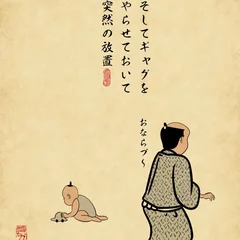 そしてギャグを
やらせておいて
突然の放置
おならプ〜